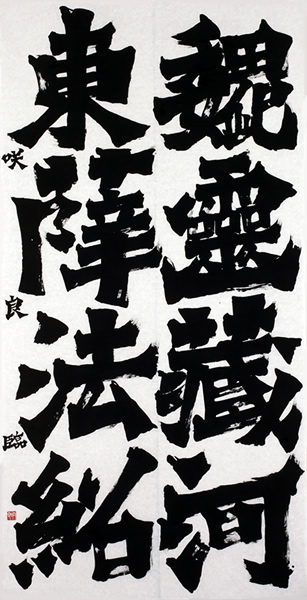 魏靈藏河
東薛法紹
咲良臨